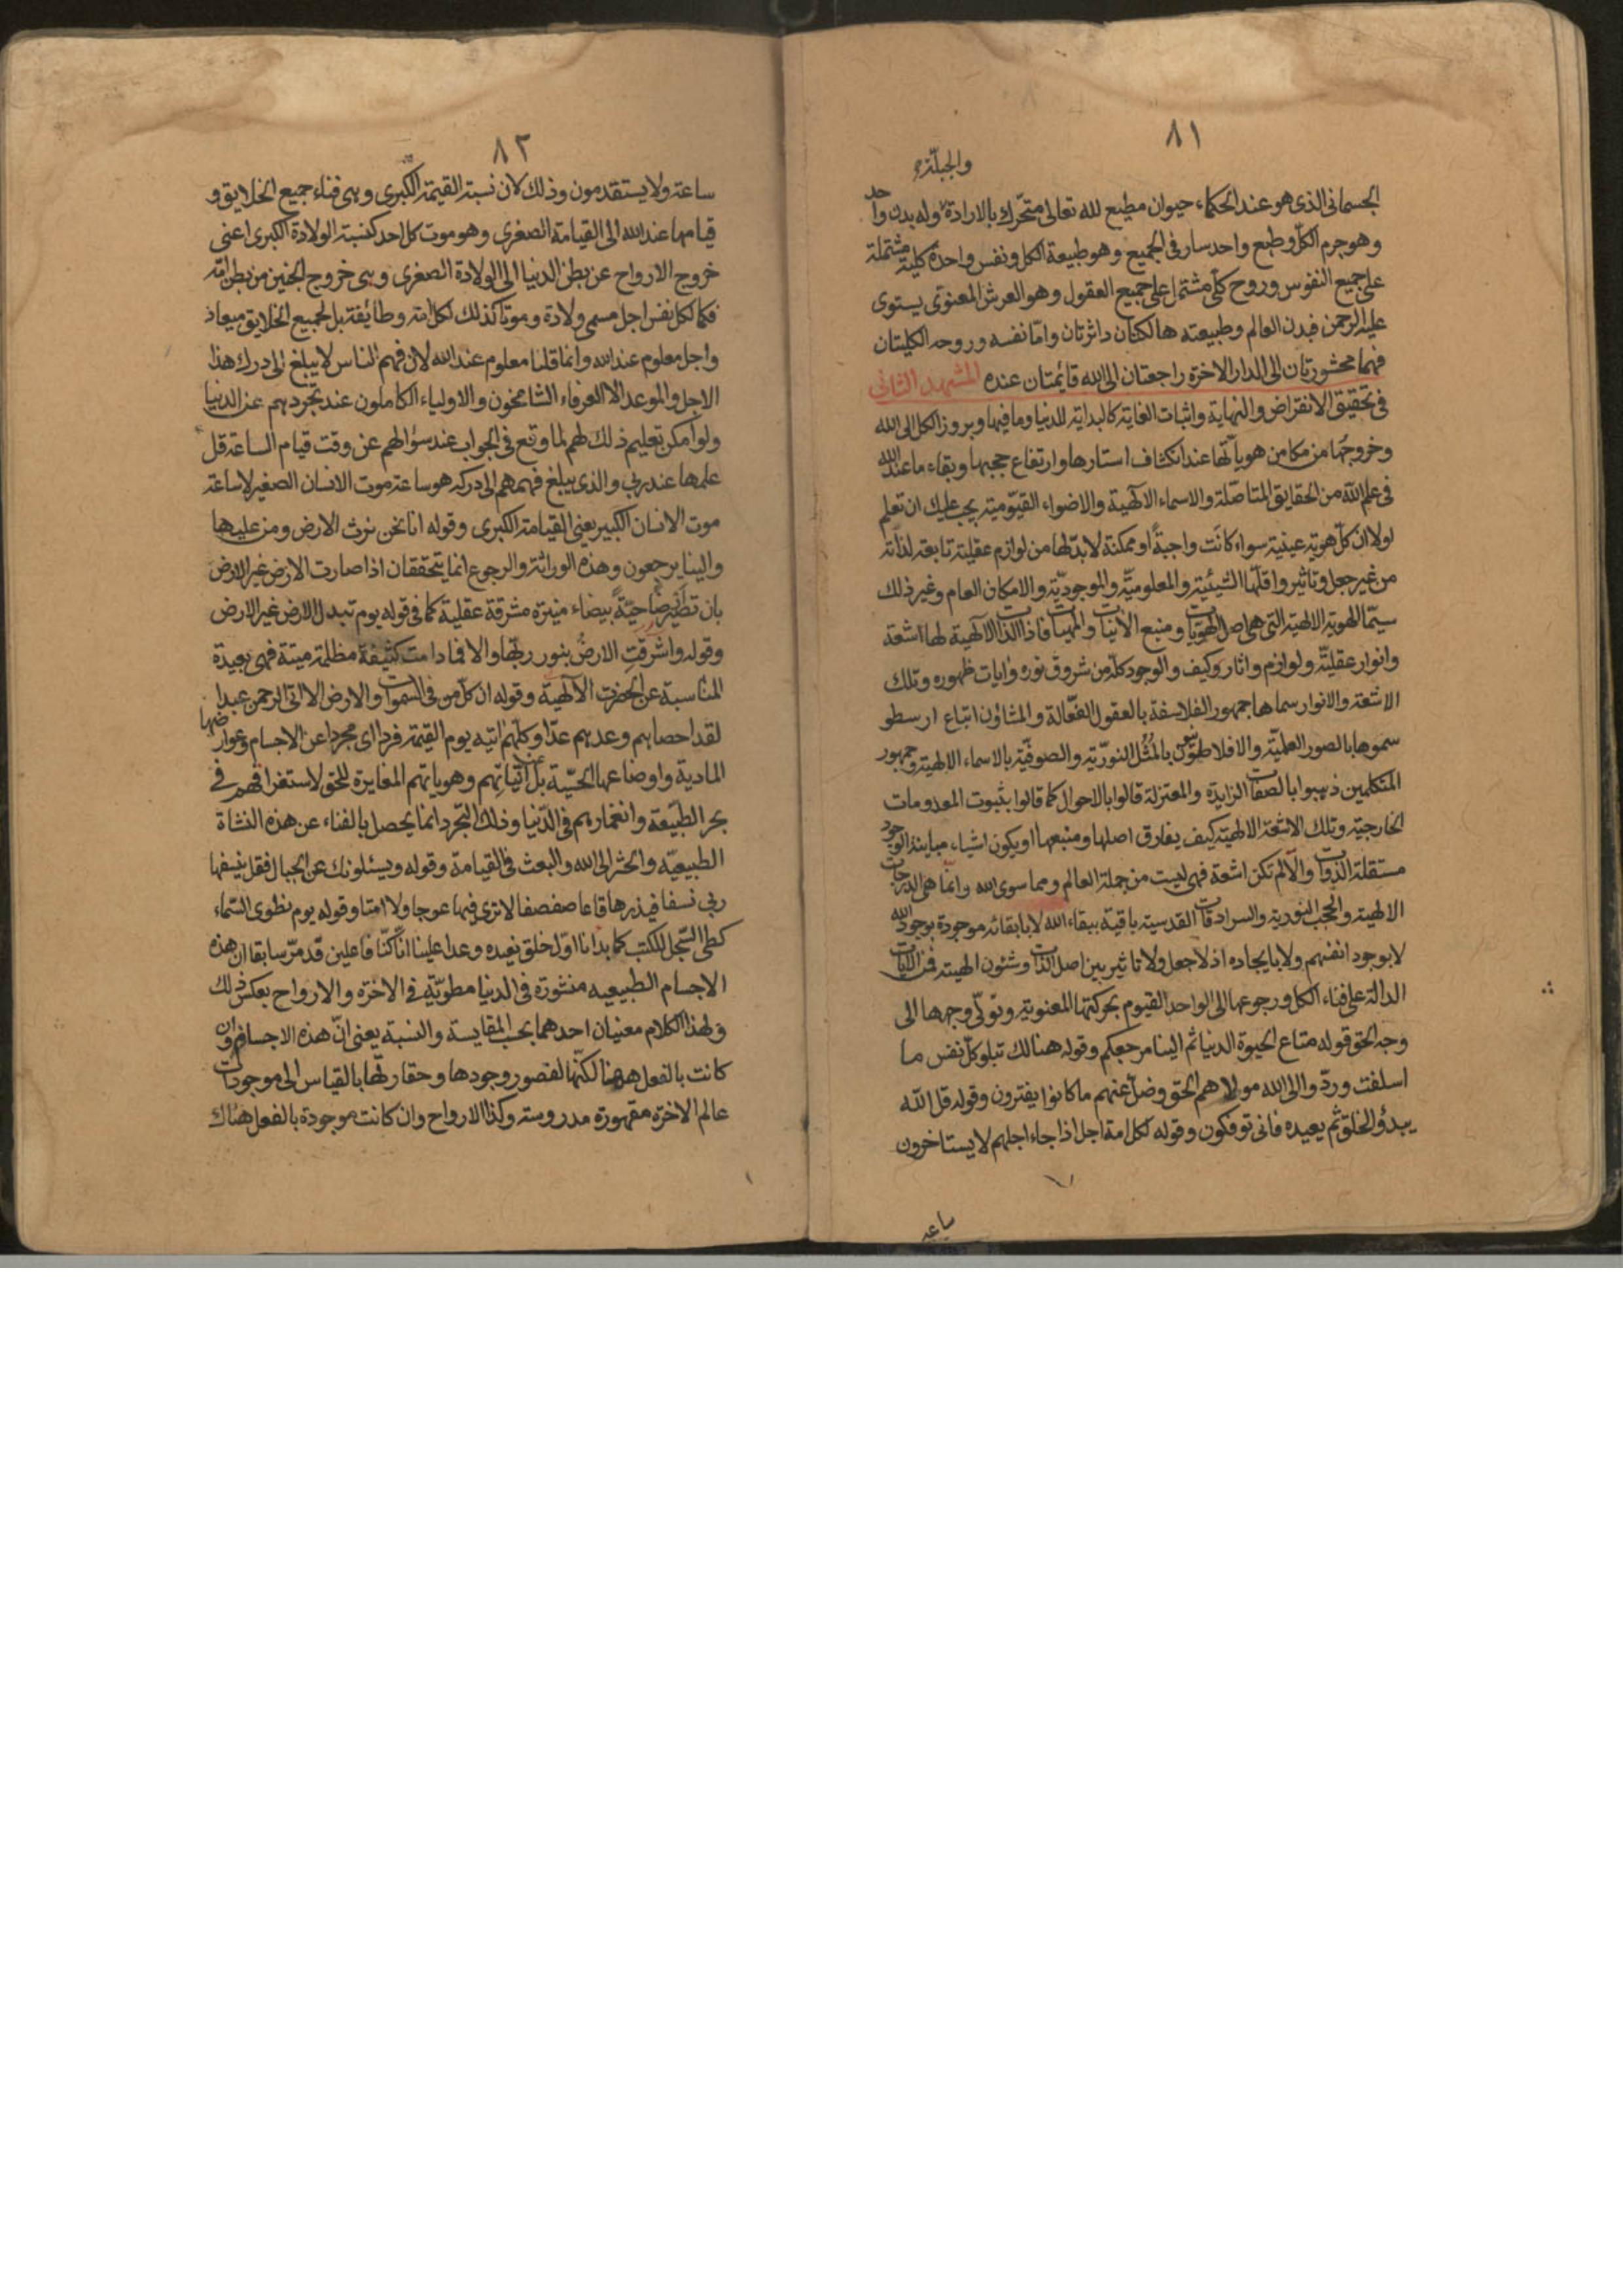 ٨١
والجبلّة
الجسمانى الذى هو عند الحكماء حيوان مطيع لله تعالى متحّرك بالارادة وله بدن واحد
وهو جرم الكلّ وطبع واحد سار فى الجميع وهو طبيعة الكل ونفس واحدة كلية مشتملة
على جميع النفوس وروح كلّى مشتمل على جميع العقول وهو العرش المعنوى يستوى
عليه الرحمن فبدن العالم وطبيعته هالكتان داثرتان وامّا نفسه وروحه الكليتان
فهما محشورتان الى الدار الاخرة راجعتان الى الله قائمتان عنده المشهد الثانى
فى تحقيق الانقراض والنهاية واثبات الغاية كالبداية للدنيا وما فيها وبروز الكل الى الله
وخروجها من مكامن هوياتها عند انكشاف استارها وارتفاع حجبها وبقاء ما عند الله
فى علم الله من الحقايق المتاصّلة والاسماء الالهية والاضواء القيّومية يجب عليك ان تعلم
اولا ان كلّ هوية عينية سواء كانت واجبةً او ممكنة لا بدّ لها من لوازم عقلية تابعة لذاته
من غير جعل وتاثير واقلّها الشيئية والمعلوميّة والموجوديّة والامكان العام وغير ذلك
سيّما الهوية الالهية التى هى اصل الهويّات ومنبع الانيات والمهيات فاذا الذات الالهية لها اشعة
وانوار عقليّة ولوازم واثار وكيف والوجود كلّه من شروق نوره وايات ظهوره وتلك
الاشعة والانوار سماها جمهور الفلاسفة بالعقول الفعّالة والمشاؤن اتباع ارسطو
سموها بالصور العلميّة والافلاطونيّون بالمُثُل النوريّة والصوفيّة بالاسماء الالهية وجمهور
المتكلمين ذهبوا بالصفات الزايدة والمعتزلة قالوا بالاحوال كما قالوا بثبوت المعدومات
الخارجية وتلك الاشعة الالهية كيف يفارق اصلها ومنبعها او يكون اشياء مباينة الوجود
مستقلة الذوات والّا لم تكن اشعة فهى ليست من جملة العالم ومما سوى الله وانّما هى الدرجات
الالهية والحجب النورية والسرادقات القدسية باقية ببقاء الله لا بابقائه موجودة بوجود الله
لا بوجود انفسهم ولا بايجاده اذ لا جعل ولا تاثير بين اصل الذات وشئون الهيته فمن الايات
الدالة على فناء الكل ورجوعها الى الواحد القيوم بحركتها المعنوية وتولّى وجهها الى
وجه الحق قوله متاع الحيوة الدنيا ثم الينا مرجعكم وقوله هنالك تبلو كلّ نفس ما
اسلفت وردّوا الى الله مولاهم الحق وضلّ عنهم ما كانوا يفترون وقوله قل الله
يبدؤ الخلق ثم يعيده فانى توفكون وقوله لكل امة اجل اذا جاء اجلهم لا يستاخرون
ساعة
٨٢
ساعة ولا يستقدمون وذلك لان نسبة القيمة الكبرى وهى فناء جميع الخلايق و
قيامها عند الله الى القيامة الصغرى وهو موت كل احد كنسبة الولادة الكبرى اعنى
خروج الارواح عن بطن الدنيا الى الولادة الصغرى وهى خروج الجنين من بطن امّه
فكما لكل نفس اجل مسمى ولادة وموتا كذلك لكل امة وطائفة بل لجميع الخلايق ميعاد
واجل معلوم عند الله وانما قلنا معلوم عند الله لان فهم الناس لا يبلغ الى درك هذا
الاجل والموعد الا العرفاء الشامخون والاولياء الكاملون عند تجردهم عن الدنيا
ولو امكن تعليم ذلك لهم لما وقع فى الجواب عند سؤالهم عن وقت قيام الساعة قل
علمها عند ربي والذى يبلغ فهمهم الى دركه هو ساعة موت الانسان الصغير لا ساعة
موت الانسان الكبير يعنى القيامة الكبرى وقوله انا نحن نرث الارض ومن عليها
والينا يرجعون وهذه الوراثة والرجوع انما يتحققان اذا صارت الارض غير الارض
بان تصير ارضا حيّةً بيضاء منيرة مشرقة عقلية كما فى قوله يوم تبدل الارض غير الارض
وقوله واشرقت الارضُ بنور ربّها والا فما دامت كثيفة مظلمة ميتة فهى بعيدة
المناسبة عن الحضرت الالهية وقوله ان كل من فى السموات والارض الا اتى الرحمن عبدا
لقد احصاهم وعدهم عدّا وكلهم اتيه يوم القيمة فردا اى مجردا عن الاجسام وعوارضها
المادية واوضاعها الحسّية بل عن انّياتهم وهوياتهم المغايرة للحق لاستغراقهم فى
بحر الطبيعة وانغمارهم فى الدّنيا وذلك التجرد انما يحصل بالفناء عن هذه النشاة
الطبيعيّة والحشر الى الله والبعث فى القيامة وقوله ويسئلونك عن الجبال فقل ينسفها
ربي نسفا فيذرها قاعا صفصفا لا ترى فيها عوجا ولا امتا وقوله يوم نطوى السّماء
كطى السّجل للكتب كما بدانا اوّل خلق نعيده وعدا علينا انّا كنّا فاعلين قد مرّ سابقا ان هذه
الاجسام الطبيعيه منشورة فى الدنيا مطويّة فى الاخرة والارواح بعكس ذلك
ولهذا الكلام معنيان احدهما بحسب المقايسة والنسبة يعنى انّ هذه الاجسام وان
كانت بالفعل ههنا لكنّها لقصور وجودها وحقارتها بالقياس الى موجودات
عالم الاخرة مقهورة مدروسة وكذا الارواح وان كانت موجودة بالفعل هناك